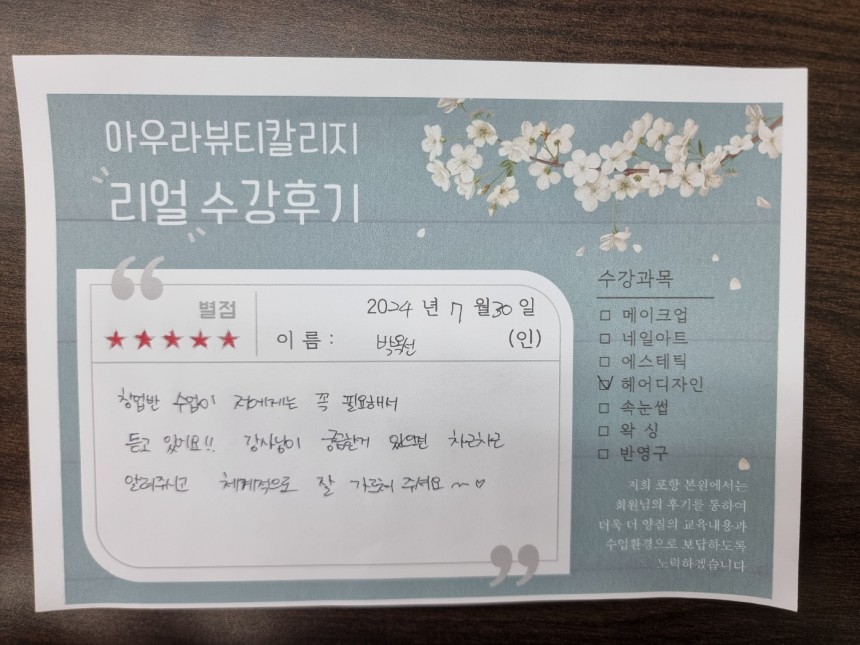 아우라뷰티칼리지
리얼 수강후기
별점
★★★★★
2024 년 7 월 30 일
이 름 : 박옥선 (인)
창업반 수업이 저에게는 꼭 필요해서
듣고 있어요!! 강사님이 궁금한거 있으면 차근차근
알려주시고 체계적으로 잘 가르쳐 주셔요 ~♡
수강과목
□ 메이크업
□ 네일아트
□ 에스테틱
☑ 헤어디자인
□ 속눈썹
□ 왁 싱
□ 반영구
저희 포항 본원에서는
회원님의 후기를 통하여
더욱 더 양질의 교육내용과
수업환경으로 보답하도록
노력하겠습니다